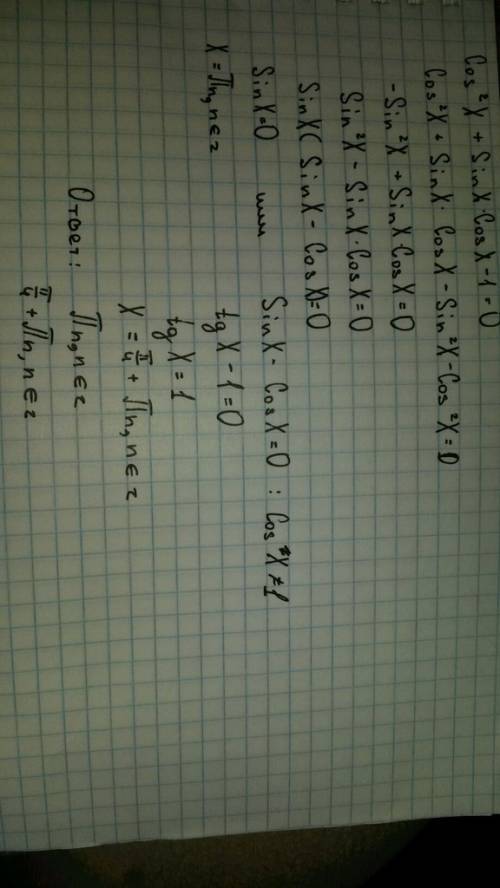 Cos²X + SinX·CosX-1=0
Cos²X + SinX· CosX - Sin²X - Cos²X = 0
-Sin²X + SinX·CosX = 0
Sin²X - SinX·CosX = 0
SinX( SinX - CosX)=0
SinX=0 или SinX - CosX=0 : Cos²X≠1
X=Πn, n∈z tgX - 1=0
tgX=1
X = Π/4 + Πn, n∈z
Ответ: Πn, n∈z
Π/4 + Πn, n∈z